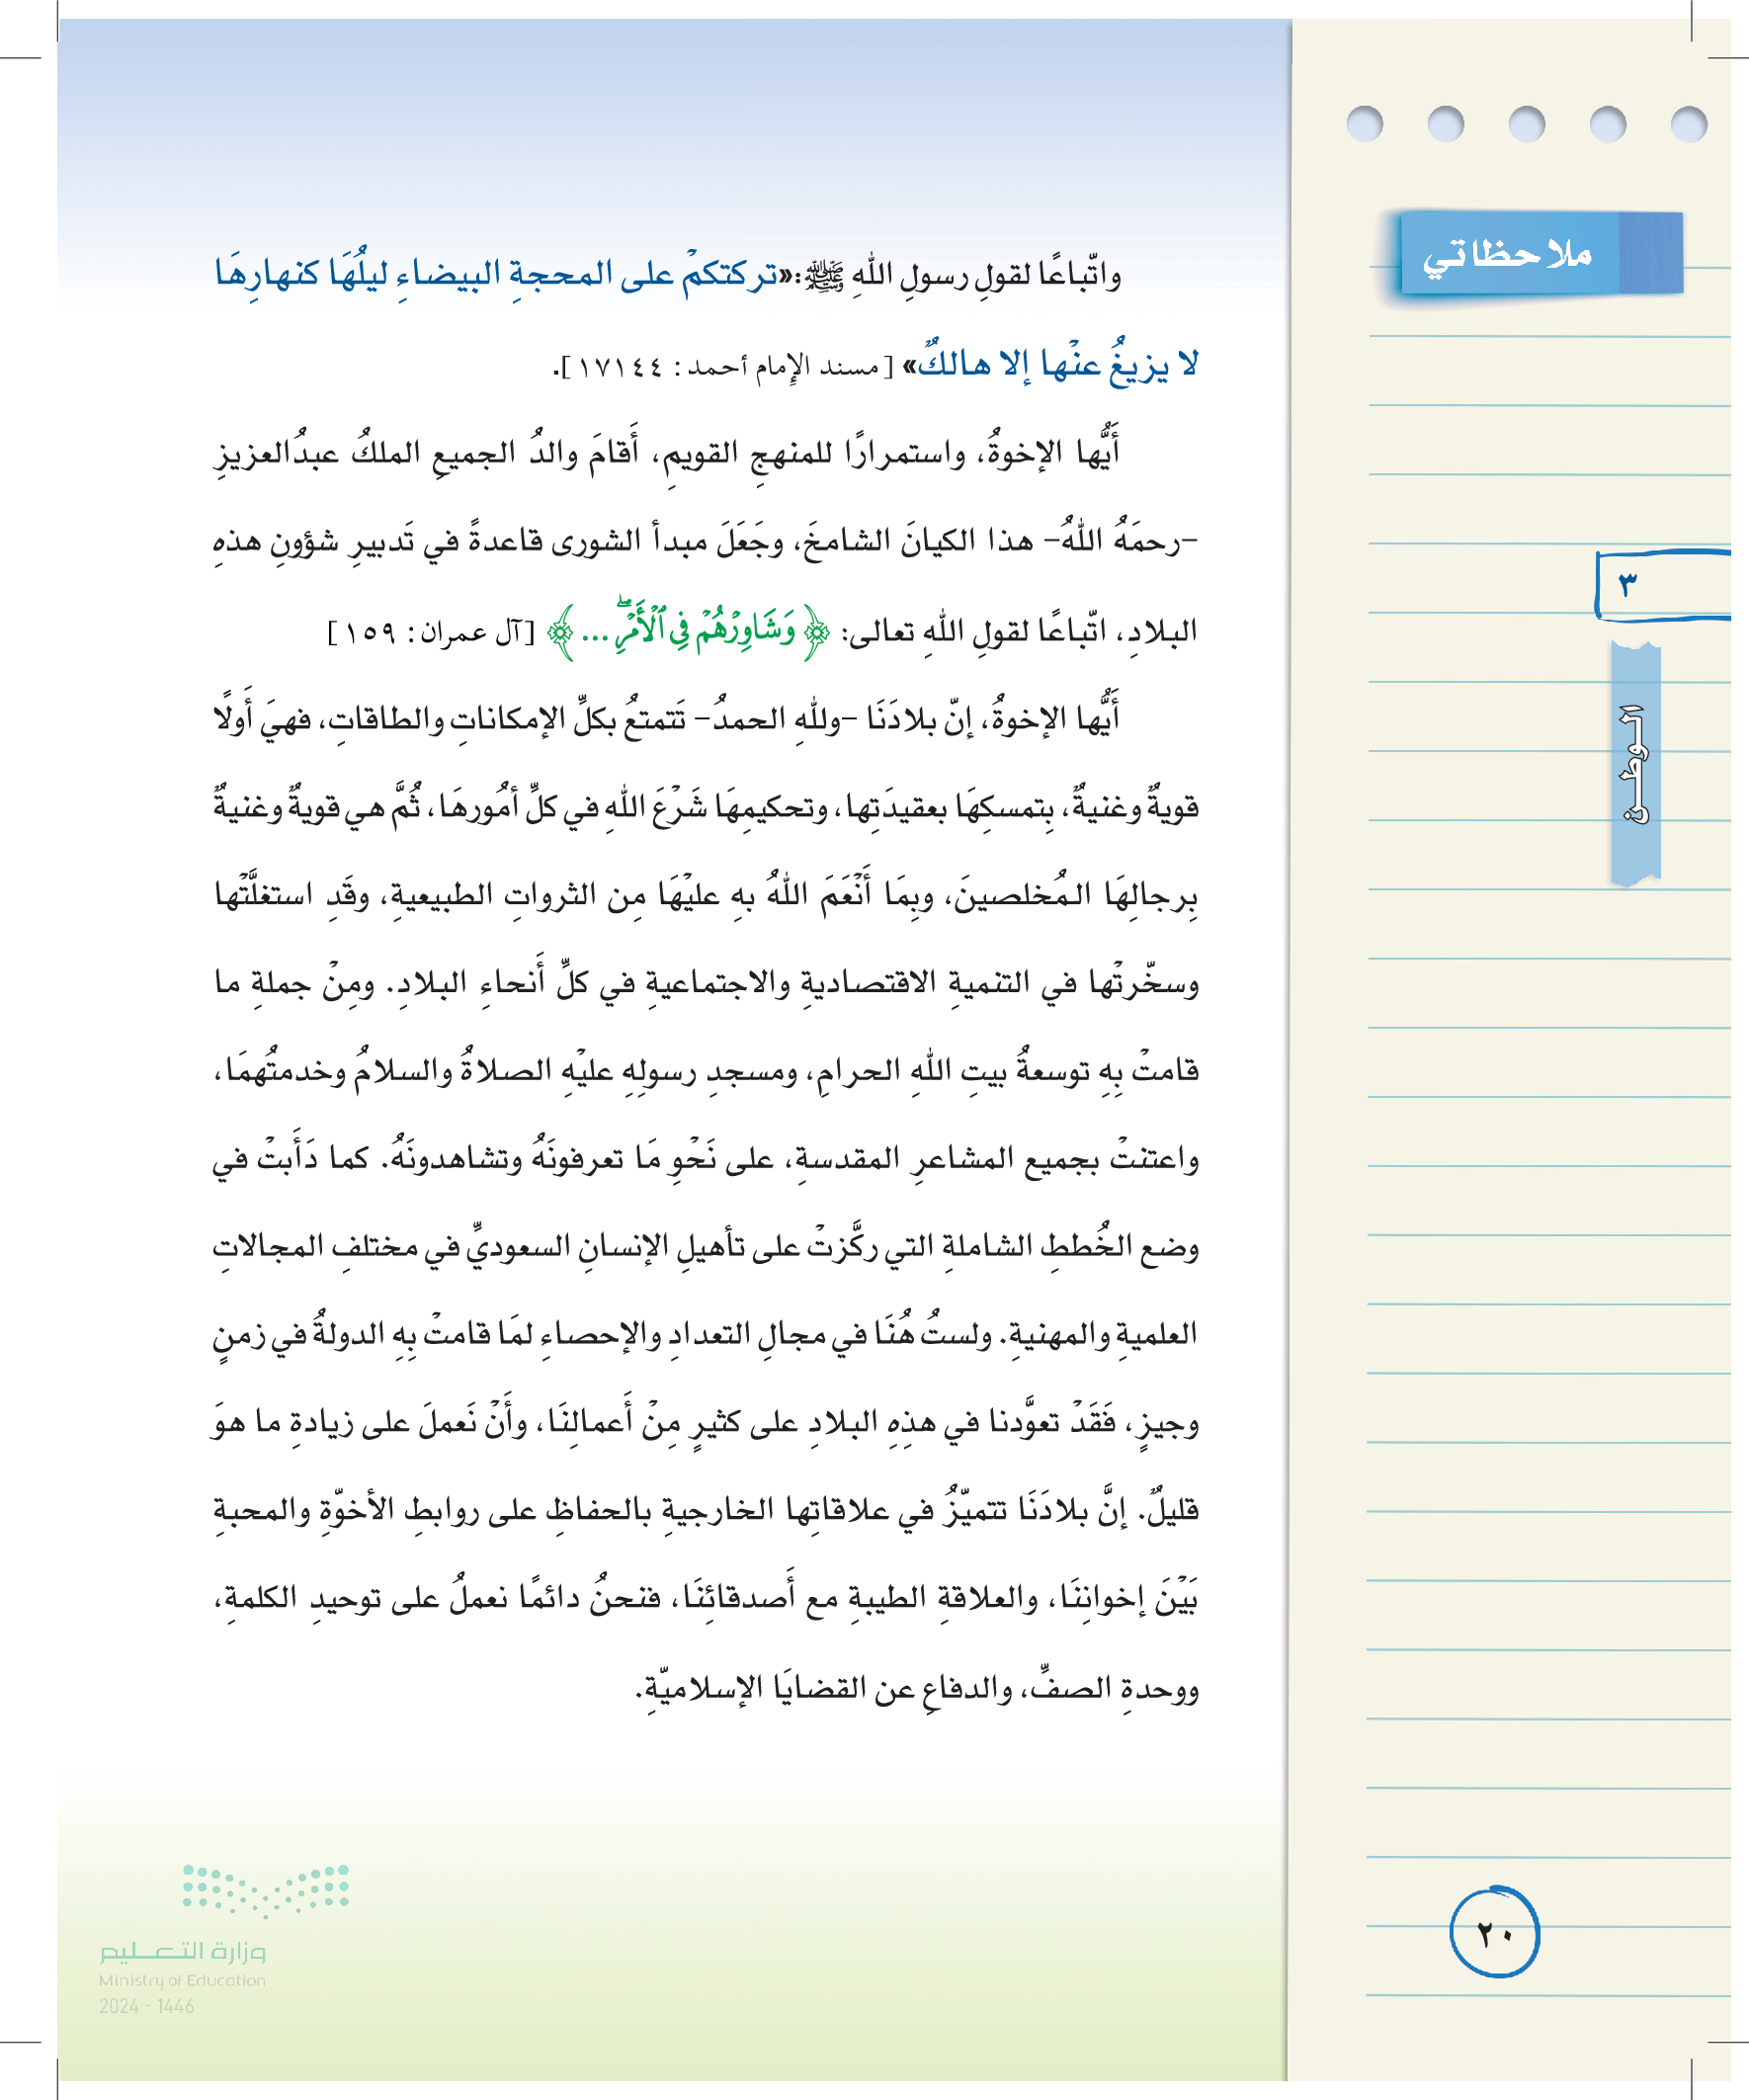 واتّباعًا لقولِ رسولِ اللهِ ﷺ:«تركتكمْ على المحجةِ البيضاءِ ليلُهَا كنهارِهَا
لا يزيغُ عنْها إلا هالكٌ» [مسند الإمام أحمد: ١٧١٤٤].
أَيُّها الإخوةُ، واستمرارًا للمنهجِ القويمِ، أَقامَ والدُ الجميعِ الملكُ عبدُالعزيزِ
-رحمَهُ اللهُ- هذا الكيانَ الشامخَ، وجَعَلَ مبدأ الشورى قاعدةً في تَدبيرِ شؤونِ هذهِ
البلادِ، اتّباعًا لقولِ اللهِ تعالى: ﴿وَشَاوِرْهُمْ فِي ٱلْأَمْرِۖ ...﴾ [آل عمران: ١٥٩]
أَيُّها الإخوةُ، إنّ بلادَنَا -وللهِ الحمدُ- تَتمتعُ بكلِّ الإمكاناتِ والطاقاتِ، فهيَ أَولًا
قويةٌ وغنيةٌ، بِتمسكِهَا بعقيدَتِها، وتحكيمِهَا شَرْعَ اللهِ في كلِّ أمُورهَا، ثُمَّ هي قويةٌ وغنيةٌ
بِرجالِهَا المُخلصينَ، وبِمَا أَنْعَمَ اللهُ بهِ عليْهَا مِن الثرواتِ الطبيعيةِ، وقَدِ استغلَّتْها
وسخّرتْها في التنميةِ الاقتصاديةِ والاجتماعيةِ في كلِّ أَنحاءِ البلادِ. ومِنْ جملةِ ما
قامتْ بِهِ توسعةُ بيتِ اللهِ الحرامِ، ومسجدِ رسولِهِ عليْهِ الصلاةُ والسلامُ وخدمتُهمَا،
واعتنتْ بجميع المشاعرِ المقدسةِ، على نَحْوِ مَا تعرفونَهُ وتشاهدونَهُ. كما دَأَبتْ في
وضع الخُططِ الشاملةِ التي ركَّزتْ على تأهيلِ الإنسانِ السعوديِّ في مختلفِ المجالاتِ
العلميةِ والمهنيةِ. ولستُ هُنَا في مجالِ التعدادِ والإحصاءِ لمَا قامتْ بِهِ الدولةُ في زمنٍ
وجيزٍ، فَقَدْ تعوَّدنا في هذِهِ البلادِ على كثيرٍ مِنْ أَعمالِنَا، وأَنْ نَعملَ على زيادةِ ما هوَ
قليلٌ. إنَّ بلادَنَا تتميّزُ في علاقاتِها الخارجيةِ بالحفاظِ على روابطِ الأخوّةِ والمحبةِ
بَيْنَ إخوانِنَا، والعلاقةِ الطيبةِ مع أَصدقائِنَا، فنحنُ دائمًا نعملُ على توحيدِ الكلمةِ،
ووحدةِ الصفِّ، والدفاعِ عن القضايَا الإسلاميّةِ.
ملاحظاتي
٣
الوطن
٢٠
وزارة التعليم
Ministry of Education
2024 - 1446